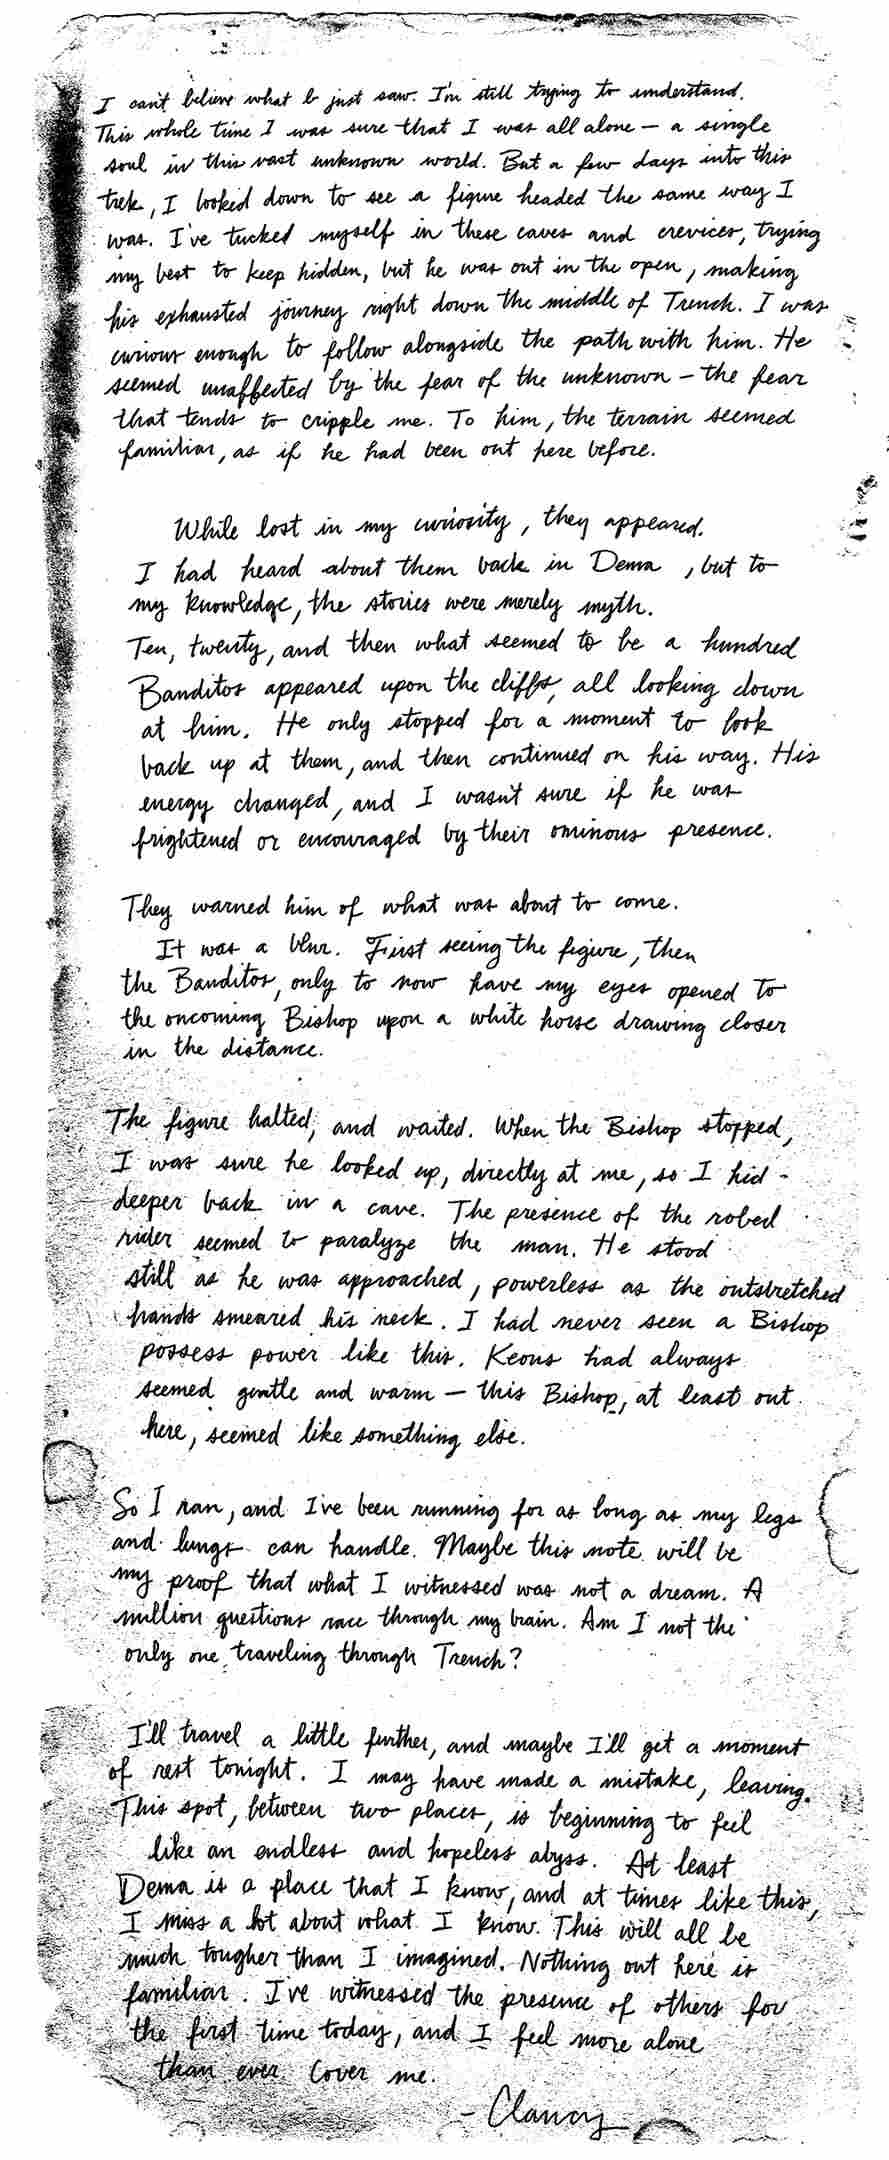 I can't believe what I just saw. I'm still trying to understand.
This whole time I was sure that I was all alone — a single
soul in this vast unknown world. But a few days into this
trek, I looked down to see a figure headed the same way I
was. I've tucked myself in these caves and crevices, trying
my best to keep hidden, but he was out in the open, making
his exhausted journey right down the middle of Trench. I was
curious enough to follow alongside the path with him. He
seemed unaffected by the fear of the unknown – the fear
that tends to cripple me. To him, the terrain seemed
familiar, as if he had been out here before.
While lost in my curiosity, they appeared.
I had heard about them back in Dema, but to
my knowledge, the stories were merely myth.
Ten, twenty, and then what seemed to be a hundred
Banditos appeared upon the cliffs, all looking down
at him. He only stopped for a moment to look
back up at them, and then continued on his way. His
energy changed, and I wasn't sure if he was
frightened or encouraged by their ominous presence.
They warned him of what was about to come.
It was a blur. First seeing the figure, then
the Banditos, only to now have my eyes opened to
the oncoming Bishop upon a white horse drawing closer
in the distance.
The figure halted, and waited. When the Bishop stopped,
I was sure he looked up, directly at me, so I hid
deeper back in a cave. The presence of the robed
rider seemed to paralyze the man. He stood
still as he was approached, powerless as the outstretched
hands smeared his neck. I had never seen a Bishop
possess power like this. Keons had always
seemed gentle and warm — this Bishop, at least out
here, seemed like something else.
So I ran, and I've been running for as long as my legs
and lungs can handle. Maybe this note will be
my proof that what I witnessed was not a dream. A
million questions race through my brain. Am I not the
only one traveling through Trench?
I'll travel a little further, and maybe I'll get a moment
of rest tonight. I may have made a mistake, leaving.
This spot, between two places, is beginning to feel
like an endless and hopeless abyss. At least
Dema is a place that I know, and at times like this,
I miss a lot about what I know. This will all be
much tougher than I imagined. Nothing out here is
familiar. I've witnessed the presence of others for
the first time today, and I feel more alone
than ever. Cover me.
– Clancy